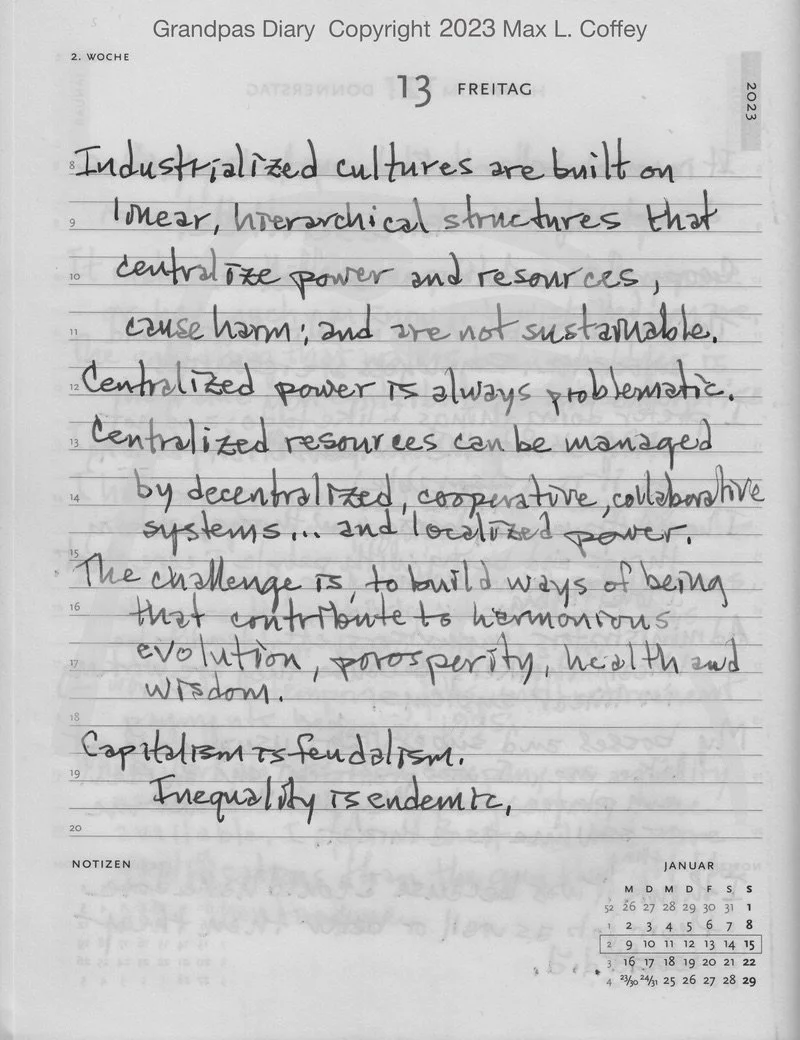 Grandpas Diary Copyright 2023 Max L. Coffey
2. WOCHE
13 FREITAG
2023
8 Industrialized cultures are built on
9 linear, hierarchical structures that
10 centralize power and resources,
11 cause harm; and are not sustainable.
12 Centralized power is always problematic.
13 Centralized resources can be managed
14 by decentralized, cooperative, collaborative
systems... and localized power.
15
The challenge is, to build ways of being
16 that contribute to harmonious
evolution, porosperity, health and
17
wisdom.
18
Capitalism is feudalism.
19
Inequality is endemic,
20
NOTIZEN
JANUAR
M D M D F S S
52 26 27 28 29 30 31 1
1 2 3 4 5 6 7 8
2 9 10 11 12 13 14 15
3 16 17 18 19 20 21 22
4 23/30 24/31 25 26 27 28 29